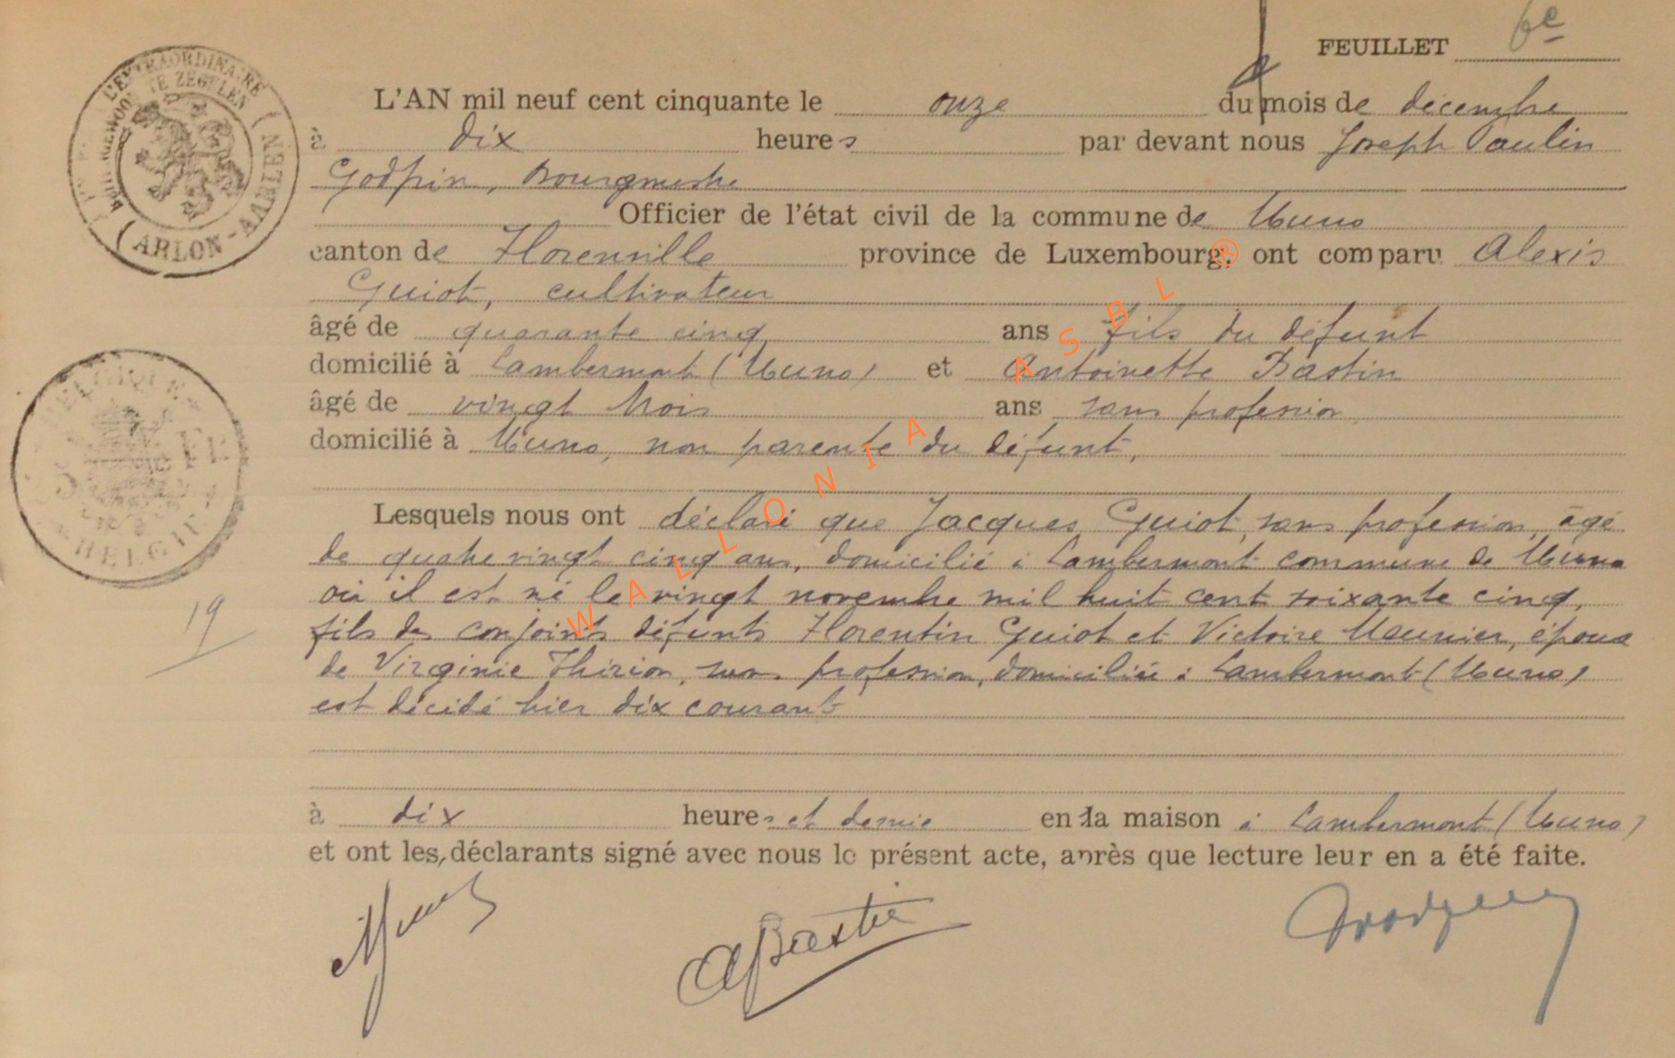 FEUILLET 6e
L'AN mil neuf cent cinquante le onze du mois de décembre
à dix heures par devant nous Joseph Paulin
Godfrin, Bourgmestre
Officier de l'état civil de la commune de Muno
canton de Florenville province de Luxembourg, ont comparu Alexis
Guiot, cultivateur
âgé de quarante cinq ans fils du défunt
domicilié à Lambermont (Muno) et Antoinette Bastin
âgé de vingt trois ans sans profession
domicilié à Muno, non parente du défunt,
Lesquels nous ont déclaré que Jacques Guiot, sans profession, âgé
de quatre vingt cinq ans, domicilié à Lambermont commune de Muno
où il est né le vingt novembre mil huit cent soixante cinq,
fils des conjoints défunts Florentin Guiot et Victoire Meunier, époux
de Virginie Thirion, sans profession, domiciliée à Lambermont (Muno)
est décédé hier dix courant
à dix heures et demie en la maison à Lambermont (Muno)
et ont les déclarants signé avec nous le présent acte, après que lecture leur en a été faite.
ABastin
L'EXTRAORDINAIRE
ARLON-AARLEN
BELGIQUE
BELGIE
19
WALLONIA ASBL ®